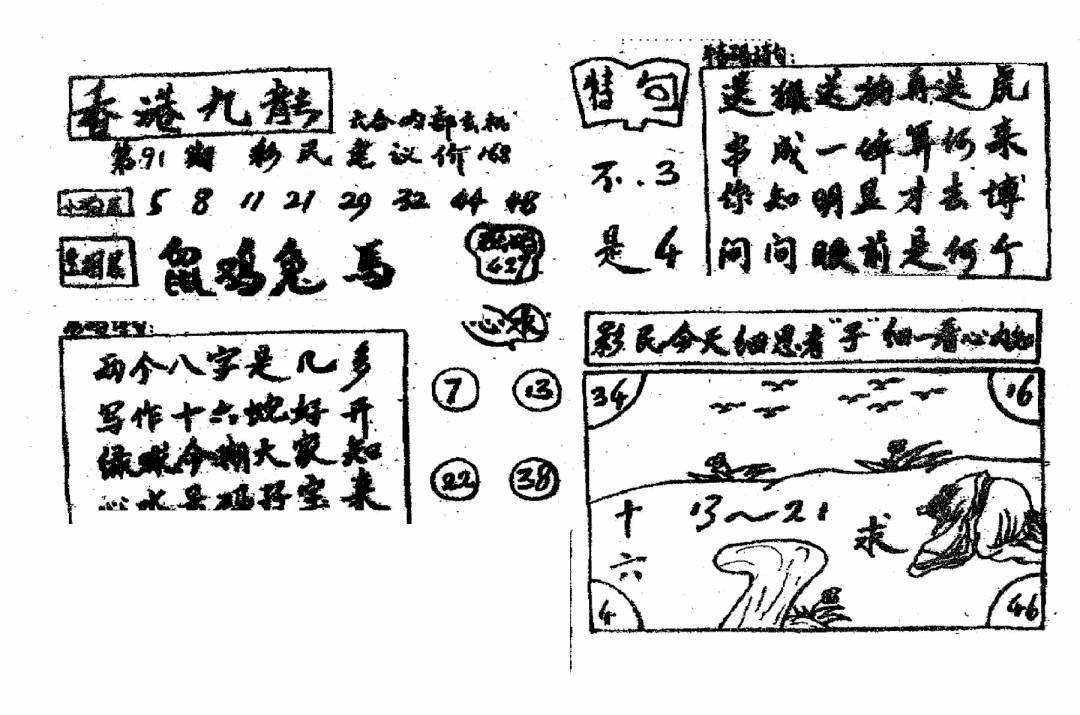 香港九龍
六合内部玄机
第91期 彩民建议价168
5 8 11 21 29 32 44 48
鼠鸡兔 馬
427
两个八字是几多
写作十六蛇好开
绿跟今期大家知
心水号码好宝来
心水
7 13
22 38
特码诗句:
特句
不.3
是4
送猴送狗再送虎
串成一体算何来
你知明显才去博
问问眼前是何个
彩民今天细思考"子"细一看心
34 16
十六
13~21
求
4 46